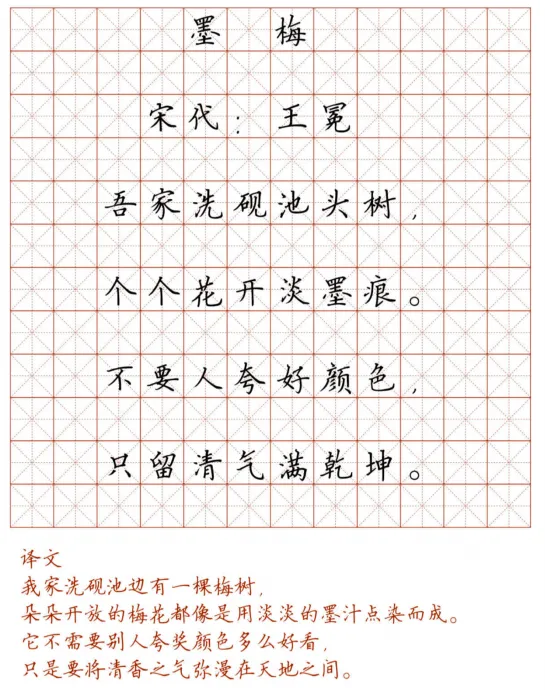 墨 梅
宋代：王冕
吾家洗砚池头树，
个个花开淡墨痕。
不要人夸好颜色，
只留清气满乾坤。
译文
我家洗砚池边有一棵梅树，
朵朵开放的梅花都像是用淡淡的墨汁点染而成。
它不需要别人夸奖颜色多么好看，
只是要将清香之气弥漫在天地之间。